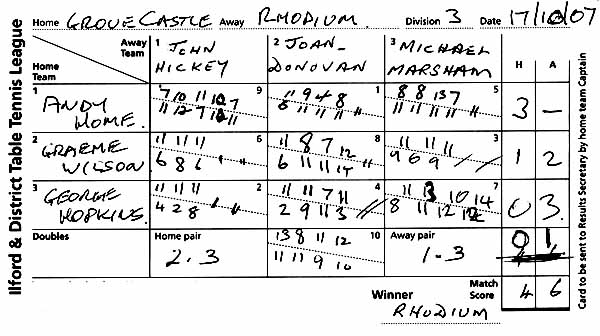 Ilford & District Table Tennis League
Home GROVE CASTLE Away RHODIUM. Division 3 Date 17/10/07
Away Team 1 JOHN HICKEY 2 JOAN DONOVAN 3 MICHAEL MARSHAM H A
Home Team
1 ANDY HOME. 9 1 5 3 –
7 10 11 12 7 11 9 4 8 8 8 13 7
11 12 7 11 6 11 11 11 11 11 11 11
2 GRAEME WILSON 6 8 3 1 2
11 11 11 11 8 7 12 11 11 11
6 8 6 6 11 11 14 9 6 9
3 GEORGE HOPKINS. 2 4 7 0 3.
11 11 11 11 11 7 11 11 13 10 14
4 2 8 2 9 11 3 8 11 12 12
Doubles Home pair 2.3 10 Away pair 1-3 0 1
13 8 11 12
11 11 9 10
Winner RHODIUM Match Score 4 6
Card to be sent to Results Secretary by home team Captain